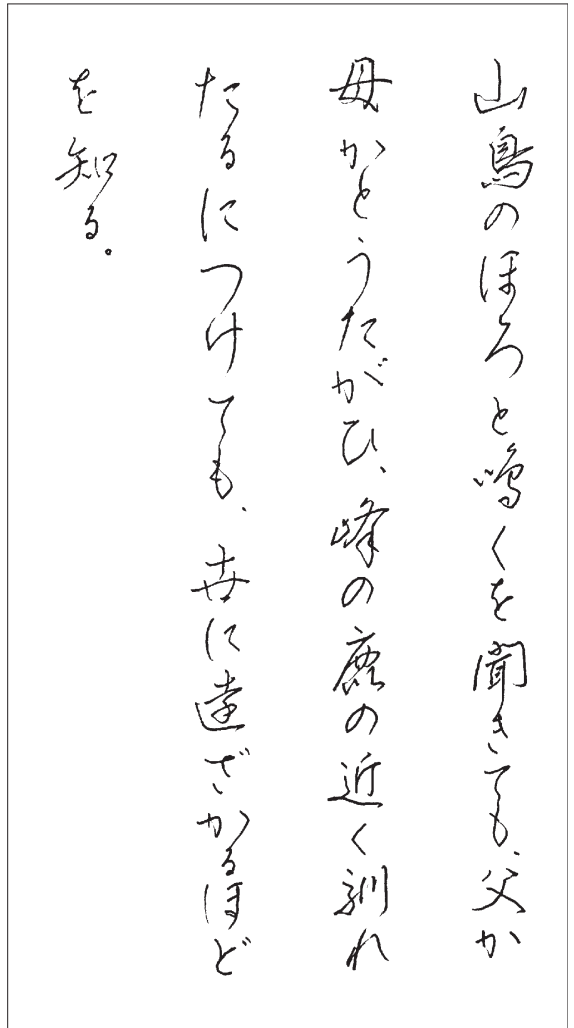 山鳥のほろと鳴くを聞きても、父か
母かとうたがひ、峰の鹿の近く馴れ
たるにつけても、世に遠ざかるほど
を知る。